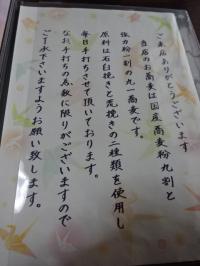 ご来店ありがとうございます
当店のお蕎麦は国産蕎麦粉九割と
強力粉一割の九一蕎麦です。
原料は石臼挽きと荒挽きの二種類を使用し
毎日手打ちさせて頂いております。
なお手打ちの為数に限りがございますので
ご了承下さいますようお願い致します。